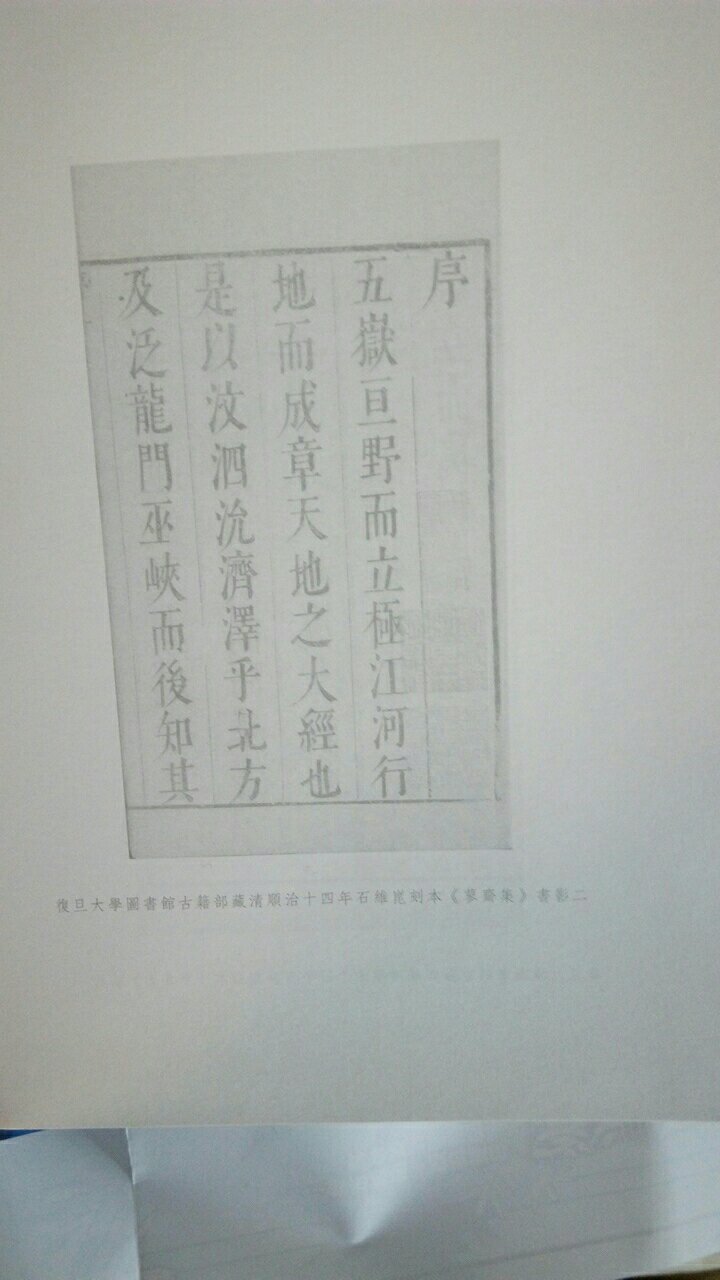 序
五嶽亘野而立極江河行
地而成章天地之大經也
是以汶泗沇濟澤乎北方
及泛龍門巫峽而後知其
復旦大學圖書館古籍部藏清順治十四年石維崑刻本《蓼齋集》書影二